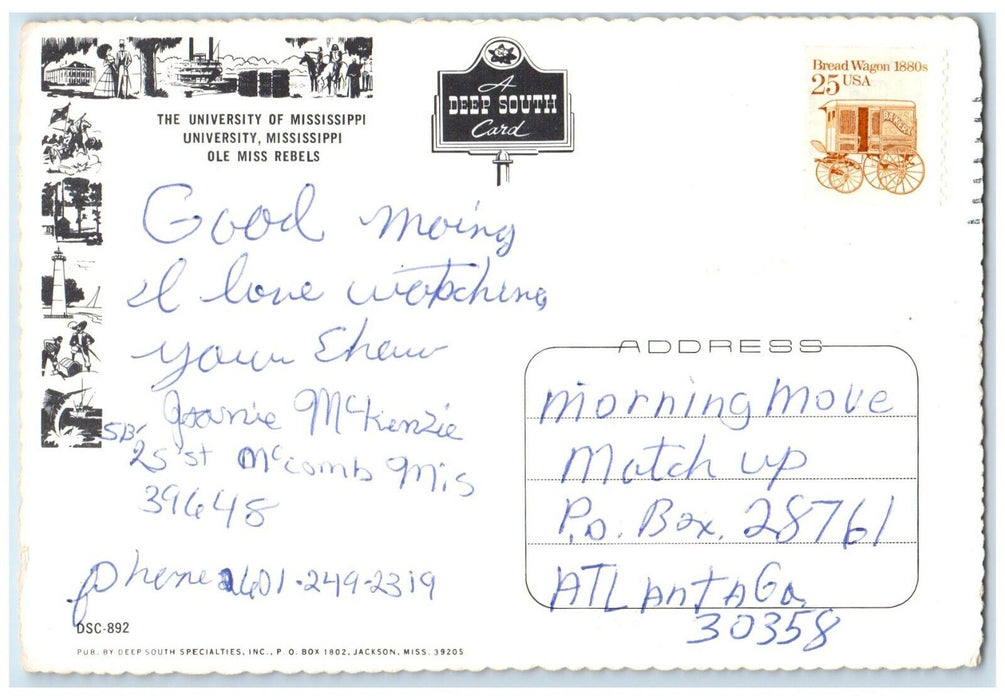 Bread Wagon 1880s
25 USA
BAKERY
A
DEEP SOUTH
Card
THE UNIVERSITY OF MISSISSIPPI
UNIVERSITY, MISSISSIPPI
OLE MISS REBELS
Good moing
I love watching
your Show
Joanie McKenzie
25 st McComb Mis
39648
phone 601-249-2319
DSC-892
PUB. BY DEEP SOUTH SPECIALTIES, INC., P. O. BOX 1802, JACKSON, MISS. 39205
ADDRESS
Morning Move
Match up
P.O. Box. 28761
ATLAntA Ga,
30358